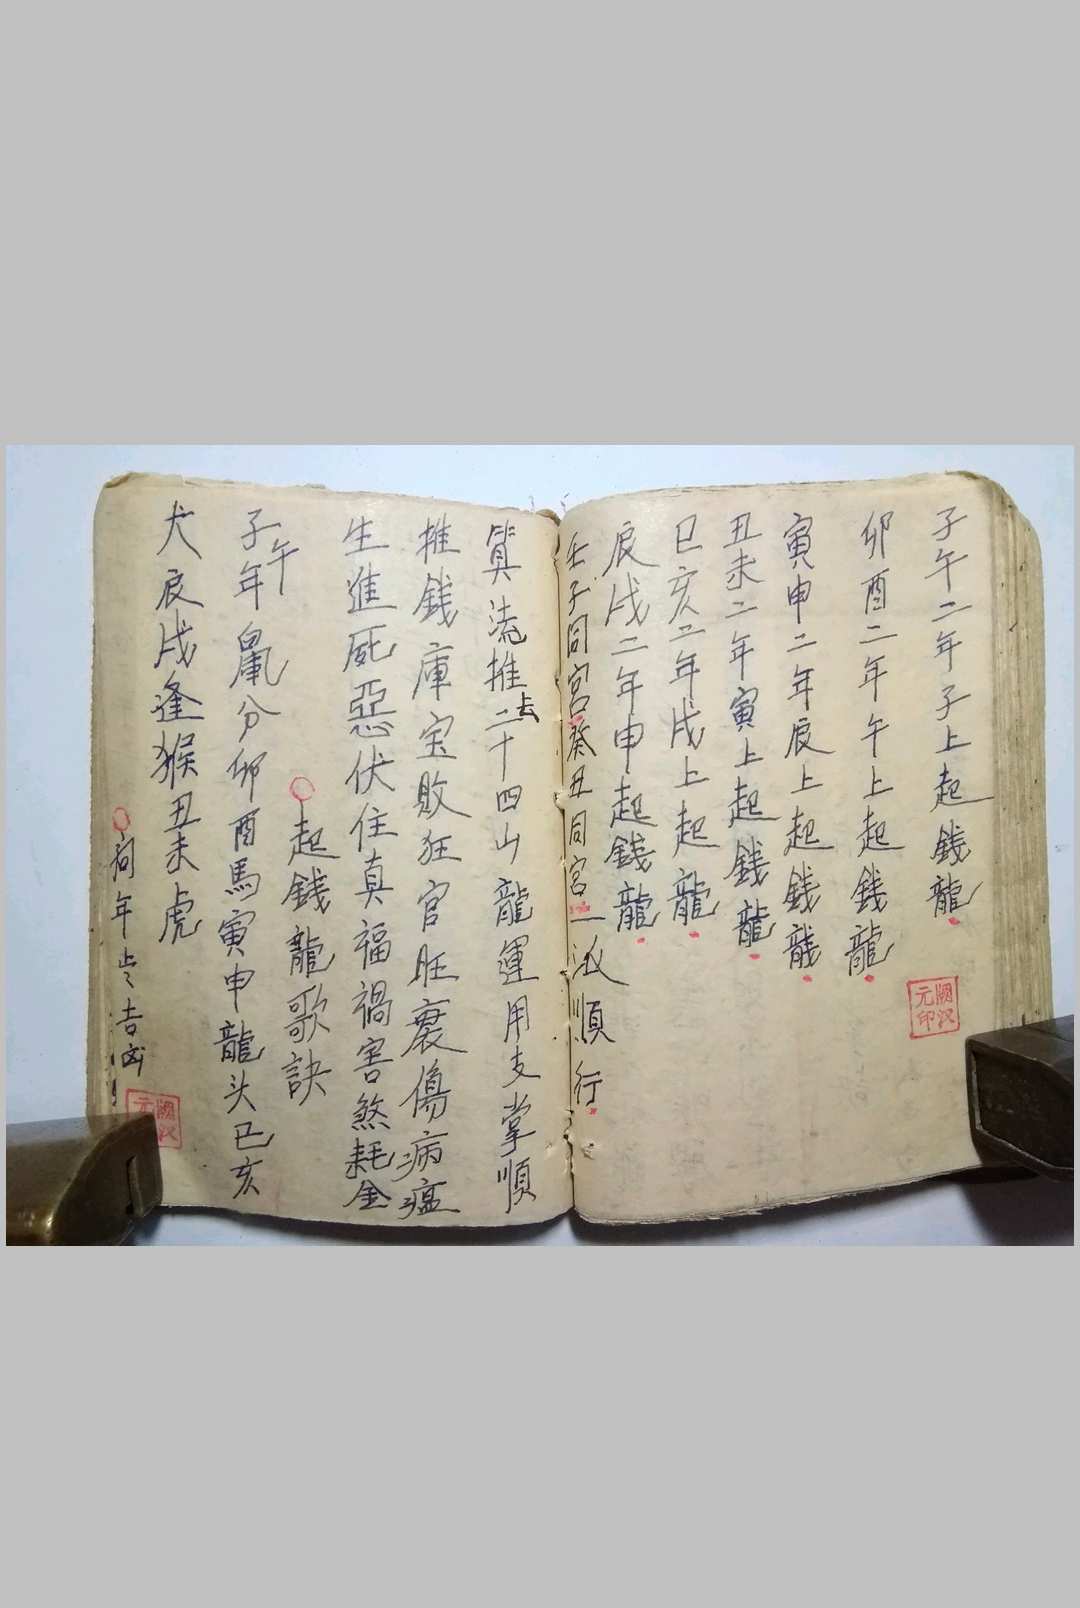 子午二年子上起錢龍
卯酉二年午上起錢龍
寅申二年辰上起錢龍
丑未二年寅上起錢龍
巳亥二年戌上起龍
辰戌二年申起錢龍
壬子同宮癸丑同宮一派順行
算流推去二十四山龍運用支掌順
推錢庫宝敗狂官旺衰傷病瘟
生進死惡伏住真福禍害煞耗金
起錢龍歌訣
子午年鼠分卯酉馬寅申龍头巳亥
犬辰戌逢猴丑未虎
年吉凶